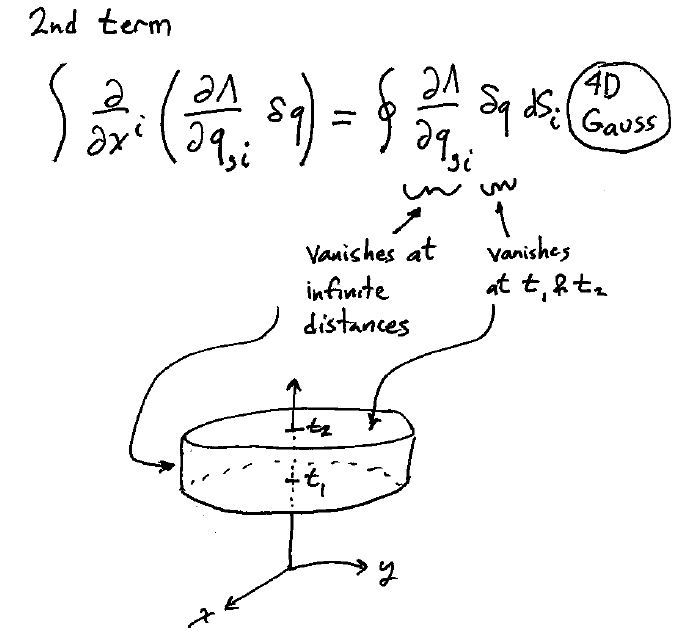 2nd term
∫ ∂/∂xⁱ (∂Λ/∂q,ᵢ δq) = ∮ ∂Λ/∂q,ᵢ δq dSᵢ 4D Gauss
vanishes at infinite distances
vanishes at t₁ & t₂
t₂
t₁
y
x